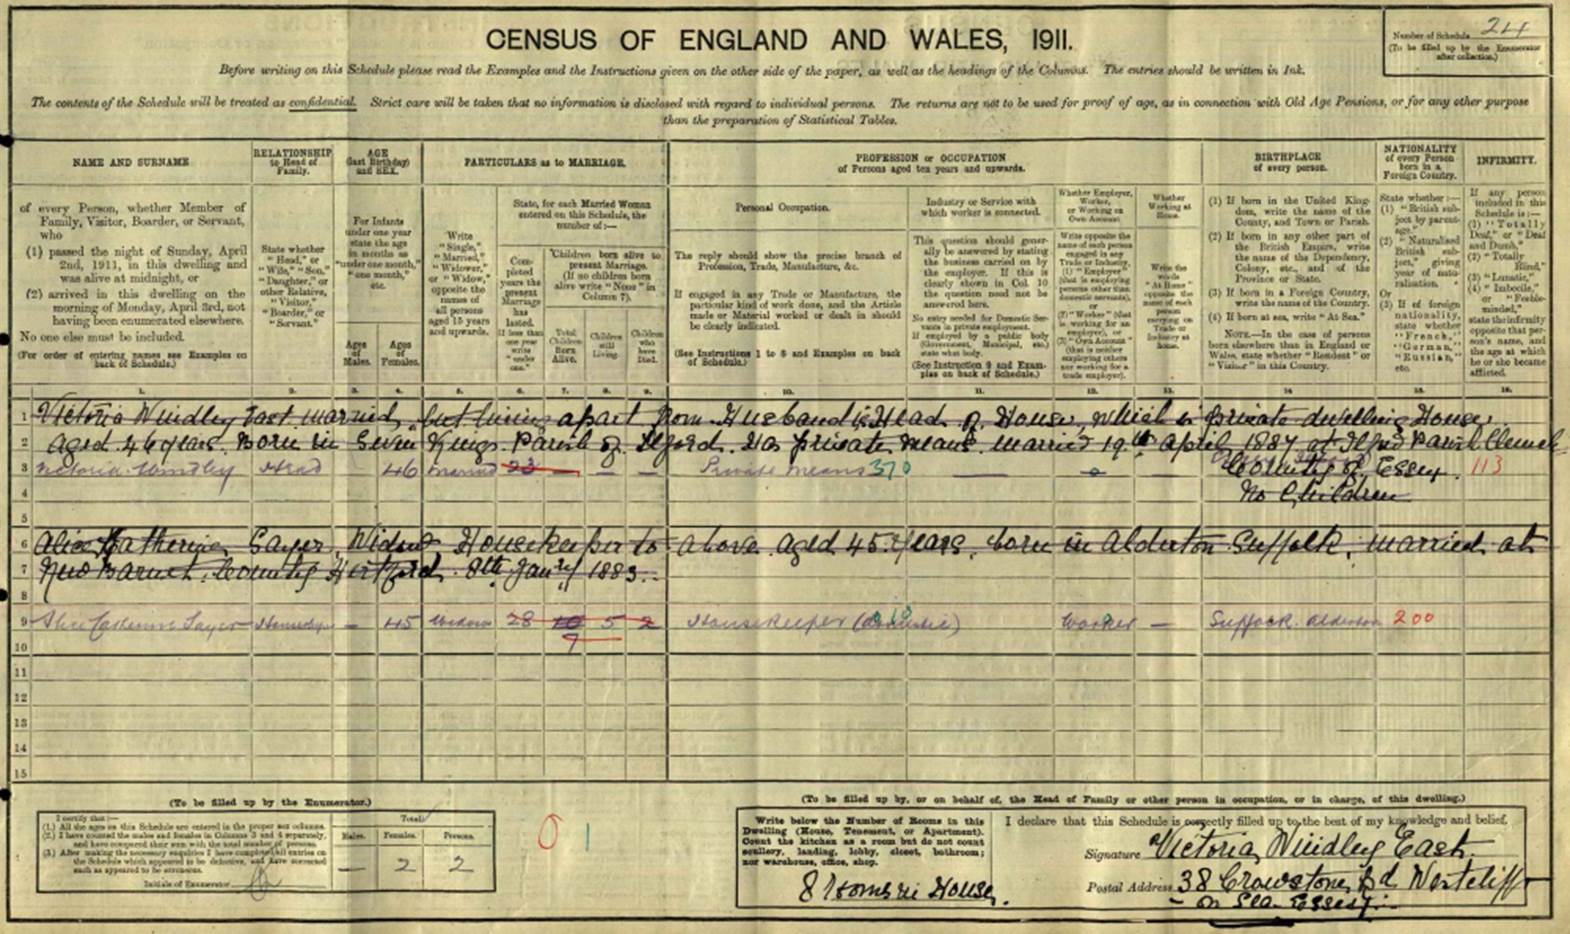 CENSUS OF ENGLAND AND WALES, 1911.
Number of Schedule 24
(To be filled up by the Enumerator after collection.)
Before writing on this Schedule please read the Examples and the Instructions given on the other side of the paper, as well as the headings of the Columns. The entries should be written in Ink.
The contents of the Schedule will be treated as confidential. Strict care will be taken that no information is disclosed with regard to individual persons. The returns are not to be used for proof of age, as in connection with Old Age Pensions, or for any other purpose
than the preparation of Statistical Tables.
NAME AND SURNAME
of every Person, whether Member of
Family, Visitor, Boarder, or Servant,
who
(1) passed the night of Sunday, April
2nd, 1911, in this dwelling and
was alive at midnight, or
(2) arrived in this dwelling on the
morning of Monday, April 3rd, not
having been enumerated elsewhere.
No one else must be included.
(For order of entering names see Examples on
back of Schedule.)
RELATIONSHIP
to Head of
Family.
State whether
"Head," or
"Wife," "Son,"
"Daughter," or
other Relative,
"Visitor,"
"Boarder," or
"Servant."
AGE
(last Birthday)
and SEX.
For Infants
under one year
state the age
in months as
"under one month,"
"one month,"
etc.
Ages
of
Males.
Ages
of
Females.
PARTICULARS as to MARRIAGE.
Write
"Single,"
"Married,"
"Widower,"
or "Widow,"
opposite the
names of
all persons
aged 15 years
and upwards.
State, for each Married Woman
entered on this Schedule, the
number of:—
Completed
years the
present
Marriage
has
lasted.
If less than
one year
write
"under
one."
Children born alive to
present Marriage.
(If no children born
alive write "None" in
Column 7).
Total
Children
Born
Alive.
Children
still
Living.
Children
who
have
Died.
PROFESSION or OCCUPATION
of Persons aged ten years and upwards.
Personal Occupation.
The reply should show the precise branch of
Profession, Trade, Manufacture, &c.
If engaged in any Trade or Manufacture, the
particular kind of work done, and the Article
made or Material worked or dealt in should
be clearly indicated.
(See Instructions 1 to 8 and Examples on back
of Schedule.)
Industry or Service with
which worker is connected.
This question should generally
be answered by stating
the business carried on by
the employer. If this is
clearly shown in Col. 10
the question need not be
answered here.
No entry needed for Domestic Servants
in private employment.
If employed by a public body
(Government, Municipal, etc.)
state what body.
(See Instruction 9 and Examples
on back of Schedule.)
Whether Employer,
Worker,
or Working on
Own Account
Write opposite the
name of each person
engaged in any
Trade or Industry,
(1) "Employer"
(that is employing
persons other than
domestic servants),
or
(2) "Worker" (that
is working for an
employer), or
(3) "Own Account"
(that is neither
employing others
nor working for a
trade employer).
Whether
Working at
Home.
Write the
words
"At Home"
opposite the
name of each
person
carrying on
Trade or
Industry at
home.
BIRTHPLACE
of every person.
(1) If born in the United Kingdom,
write the name of the
County, and Town or Parish.
(2) If born in any other part of
the British Empire, write
the name of the Dependency,
Colony, etc., and of the
Province or State.
(3) If born in a Foreign Country,
write the name of the Country.
(4) If born at sea, write "At Sea."
NOTE.—In the case of persons
born elsewhere than in England or
Wales, state whether "Resident" or
"Visitor" in this Country.
NATIONALITY
of every Person
born in a
Foreign Country.
State whether:—
(1) "British subject
by parentage."
(2) "Naturalised
British subject,"
giving
year of naturalisation.
Or
(3) If of foreign
nationality,
state whether
"French,"
"German,"
"Russian,"
etc.
INFIRMITY.
If any person
included in this
Schedule is:—
(1) "Totally
Deaf," or "Deaf
and Dumb,"
(2) "Totally
Blind,"
(3) "Lunatic,"
(4) "Imbecile,"
or "Feeble-minded,"
state the infirmity
opposite that person's
name, and
the age at which
he or she became
afflicted.
1. 2. 3. 4. 5. 6. 7. 8. 9. 10. 11. 12. 13. 14. 15. 16.
1 Victoria Windley East married, but living apart from Husband is Head of House, which is private dwelling House
2 aged 46 years. Born in Seven Kings Parish of Ilford. Has private means. married 19th April 1887 at Ilford Parish Church
3 Victoria Windley Head 46 Married 23 — — Private means 370 — County of Essex 113
4 No Children
5
6 Alice Katherine Sayer, Widow, Housekeeper to above aged 45 years, born in Alderton Suffolk, married at
7 New Barnet, County Hertford. 8th Jany 1883.
8
9 Alice Catherine Sayer Housekeeper — 45 Widow 28 10 5 2 Housekeeper (domestic) Worker — Suffolk Alderton 200
10 7
11
12
13
14
15
(To be filled up by the Enumerator.)
I certify that:—
(1.) All the ages on this Schedule are entered in the proper sex columns.
(2.) I have counted the males and females in Columns 3 and 4 separately,
and have compared their sum with the total number of persons.
(3.) After making the necessary enquiries I have completed all entries on
the Schedule which appeared to be defective, and have corrected
such as appeared to be erroneous.
Initials of Enumerator
Total.
Males. Females. Persons.
— 2 2
0 1
(To be filled up by, or on behalf of, the Head of Family or other person in occupation, or in charge, of this dwelling.)
Write below the Number of Rooms in this
Dwelling (House, Tenement, or Apartment).
Count the kitchen as a room but do not count
scullery, landing, lobby, closet, bathroom;
nor warehouse, office, shop.
8 Rooms in House.
I declare that this Schedule is correctly filled up to the best of my knowledge and belief.
Signature Victoria Windley East.
Postal Address 38 Crowstone Rd Westcliff
- on Sea Essex.